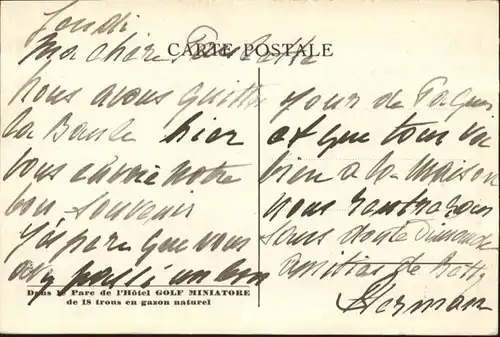 Jeudi
CARTE POSTALE
Ma chère Paulette
Nous avons quitté
la Baule hier
vous envoie notre
bon souvenir
J'espère que vous
avez passé un bon
jour de Pâques
et que tout va
bien à la maison
nous rentrerons
sans doute Dimanche
amitiés de Betty
Herman
Dans le Parc de l'Hôtel GOLF MINIATORE
de 18 trous en gazon naturel